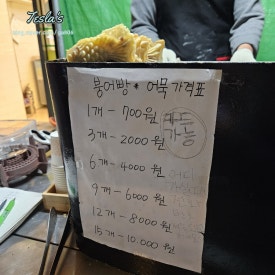 Tesla's
붕어빵 * 어묵 가격표
1개 - 700원
카드 가능
3개 - 2000원
6개 - 4000원
9개 - 6000원
12개 - 8000원
15개 - 10.000원